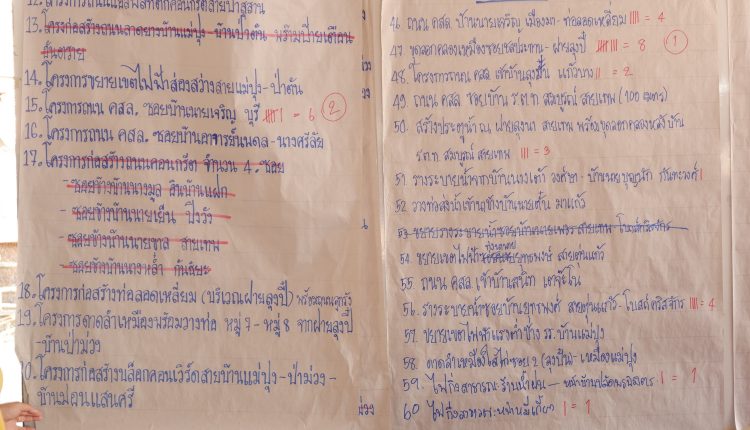 12. โครงการถนนแอสฟัลท์ติกคอนกรีตสายป่าสุสาน
13. โครงก่อสร้างถนนลาดยางบ้านแม่ปุง - บ้านป่าตัน พร้อมป้ายเตือน
อันตราย
14. โครงการขยายเขตไฟฟ้าส่องสว่างสายแม่ปุง - ป่าตัน
15. โครงการถนน คสล. ซอยบ้านนายเจริญ บุรี = 6 (2)
16. โครงการถนน คสล. ซอยบ้านอาจารย์นพดล - นางศรีลัย
17. โครงการก่อสร้างถนนคอนกรีต จำนวน 4 ซอย
- ซอยข้างบ้านนางมูล อินบ้านแฝก
- ซอยข้างบ้านนายเย็น ปิงวัง
- ซอยข้างบ้านนายชาล สายเทพ
- ซอยข้างบ้านนางหล้า กันธิยะ
18. โครงการก่อสร้างท่อลอดเหลี่ยม (บริเวณฝายลุงปี๋)
19. โครงการดาดลำเหมืองพร้อมวางท่อ หมู่ 7 - หมู่ 8 จากฝายลุงปี๋
- บ้านป่าม่วง
20. โครงการก่อสร้างบล็อกคอนเวิร์ดสายบ้านแม่ปุง - ป่าม่วง -
บ้านม่อนแสนศรี
ม่วง
46. ถนน คสล. บ้านนายเจริญ เมืองมา - ท่อลอดเหลี่ยม |||| = 4
47. ขุดลอกคลองเหมืองซอยชลประทาน - ฝายลุงปี๋ = 8 (1)
48. โครงการถนน คสล. เข้าบ้านลุงอิ่น แก้วบาง || = 2
49. ถนน คสล. ซอยบ้าน ร.ต.ท. สมบูรณ์ สายเทพ (100 เมตร)
50. สร้างประตูน้ำ ณ ฝายลุงนา สายเทพ พร้อมขุดลอกคลองหลังบ้าน
ร.ต.ท. สมบูรณ์ สายเทพ ||| = 3
51. รางระบายน้ำจากบ้านนางเต๋า วงศ์ษา - บ้านนายบุญนัก กันทะวงค์ |
52. วางท่อส่งน้ำเข้านาข้างบ้านนายตั๋น มาแก้ว
53. ขยายรางระบายน้ำซอยบ้านนายเพชร สายเทพ - โบสถ์คริสจักร
54. ขยายเขตไฟฟ้า ยุทธพงษ์ สายต่นแก้ว
55. ถนน คสล. เข้าบ้านเสน่ห์ เตจ๊ะโน
56. รางระบายน้ำซอยบ้านยุทธพงศ์ สายต่นแก้ว - โบสถ์คริสจักร |||| = 4
57. ขยายเขตไฟฟ้าแรงต่ำข้าง รร. บ้านแม่ปุง
58. ดาดลำเหมืองไส้ไก่ซอย 2 (ลุงปั๋น) - เหมืองแม่ปุง
59. ไฟกิ่งสาธารณะ ร้านน้ำฝน - หน้าบ้านปลัดพรพิสาร | = 1
60 ไฟกิ่งสาธารณะหน้าหมี่เกี๊ยว | = 1